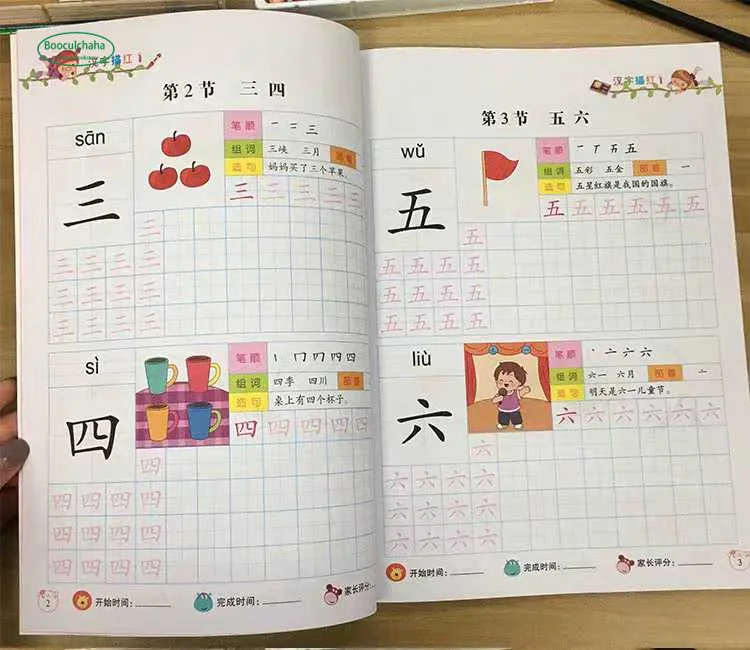 Booculchaha
汉字描红1
第2节 三 四
sān
三
笔顺 一 二 三
组词 三峡 三月 部首
造句 妈妈买了三个苹果。
三 三 三 三 三 三
三
三 三 三 三
三 三 三 三
三 三 三 三
sì
四
笔顺 丨 冂 四 四 四
组词 四季 四川 部首
造句 桌上有四个杯子。
四 四 四 四 四
四
四 四 四 四
四 四 四 四
四 四 四 四
2 开始时间: 完成时间: 家长评分:
汉字描红1
第3节 五 六
wǔ
五
笔顺 一 丅 五 五
组词 五彩 五金 部首 一
造句 五星红旗是我国的国旗。
五 五 五 五 五 五
五
五 五 五 五
五 五 五 五
五 五 五 五
liù
六
笔顺 丶 亠 六 六
组词 六一 六月 部首 亠
造句 明天是六一儿童节。
六 六 六 六 六 六
六
六 六 六 六
六 六 六 六
六 六 六 六
开始时间: 完成时间: 家长评分: 3